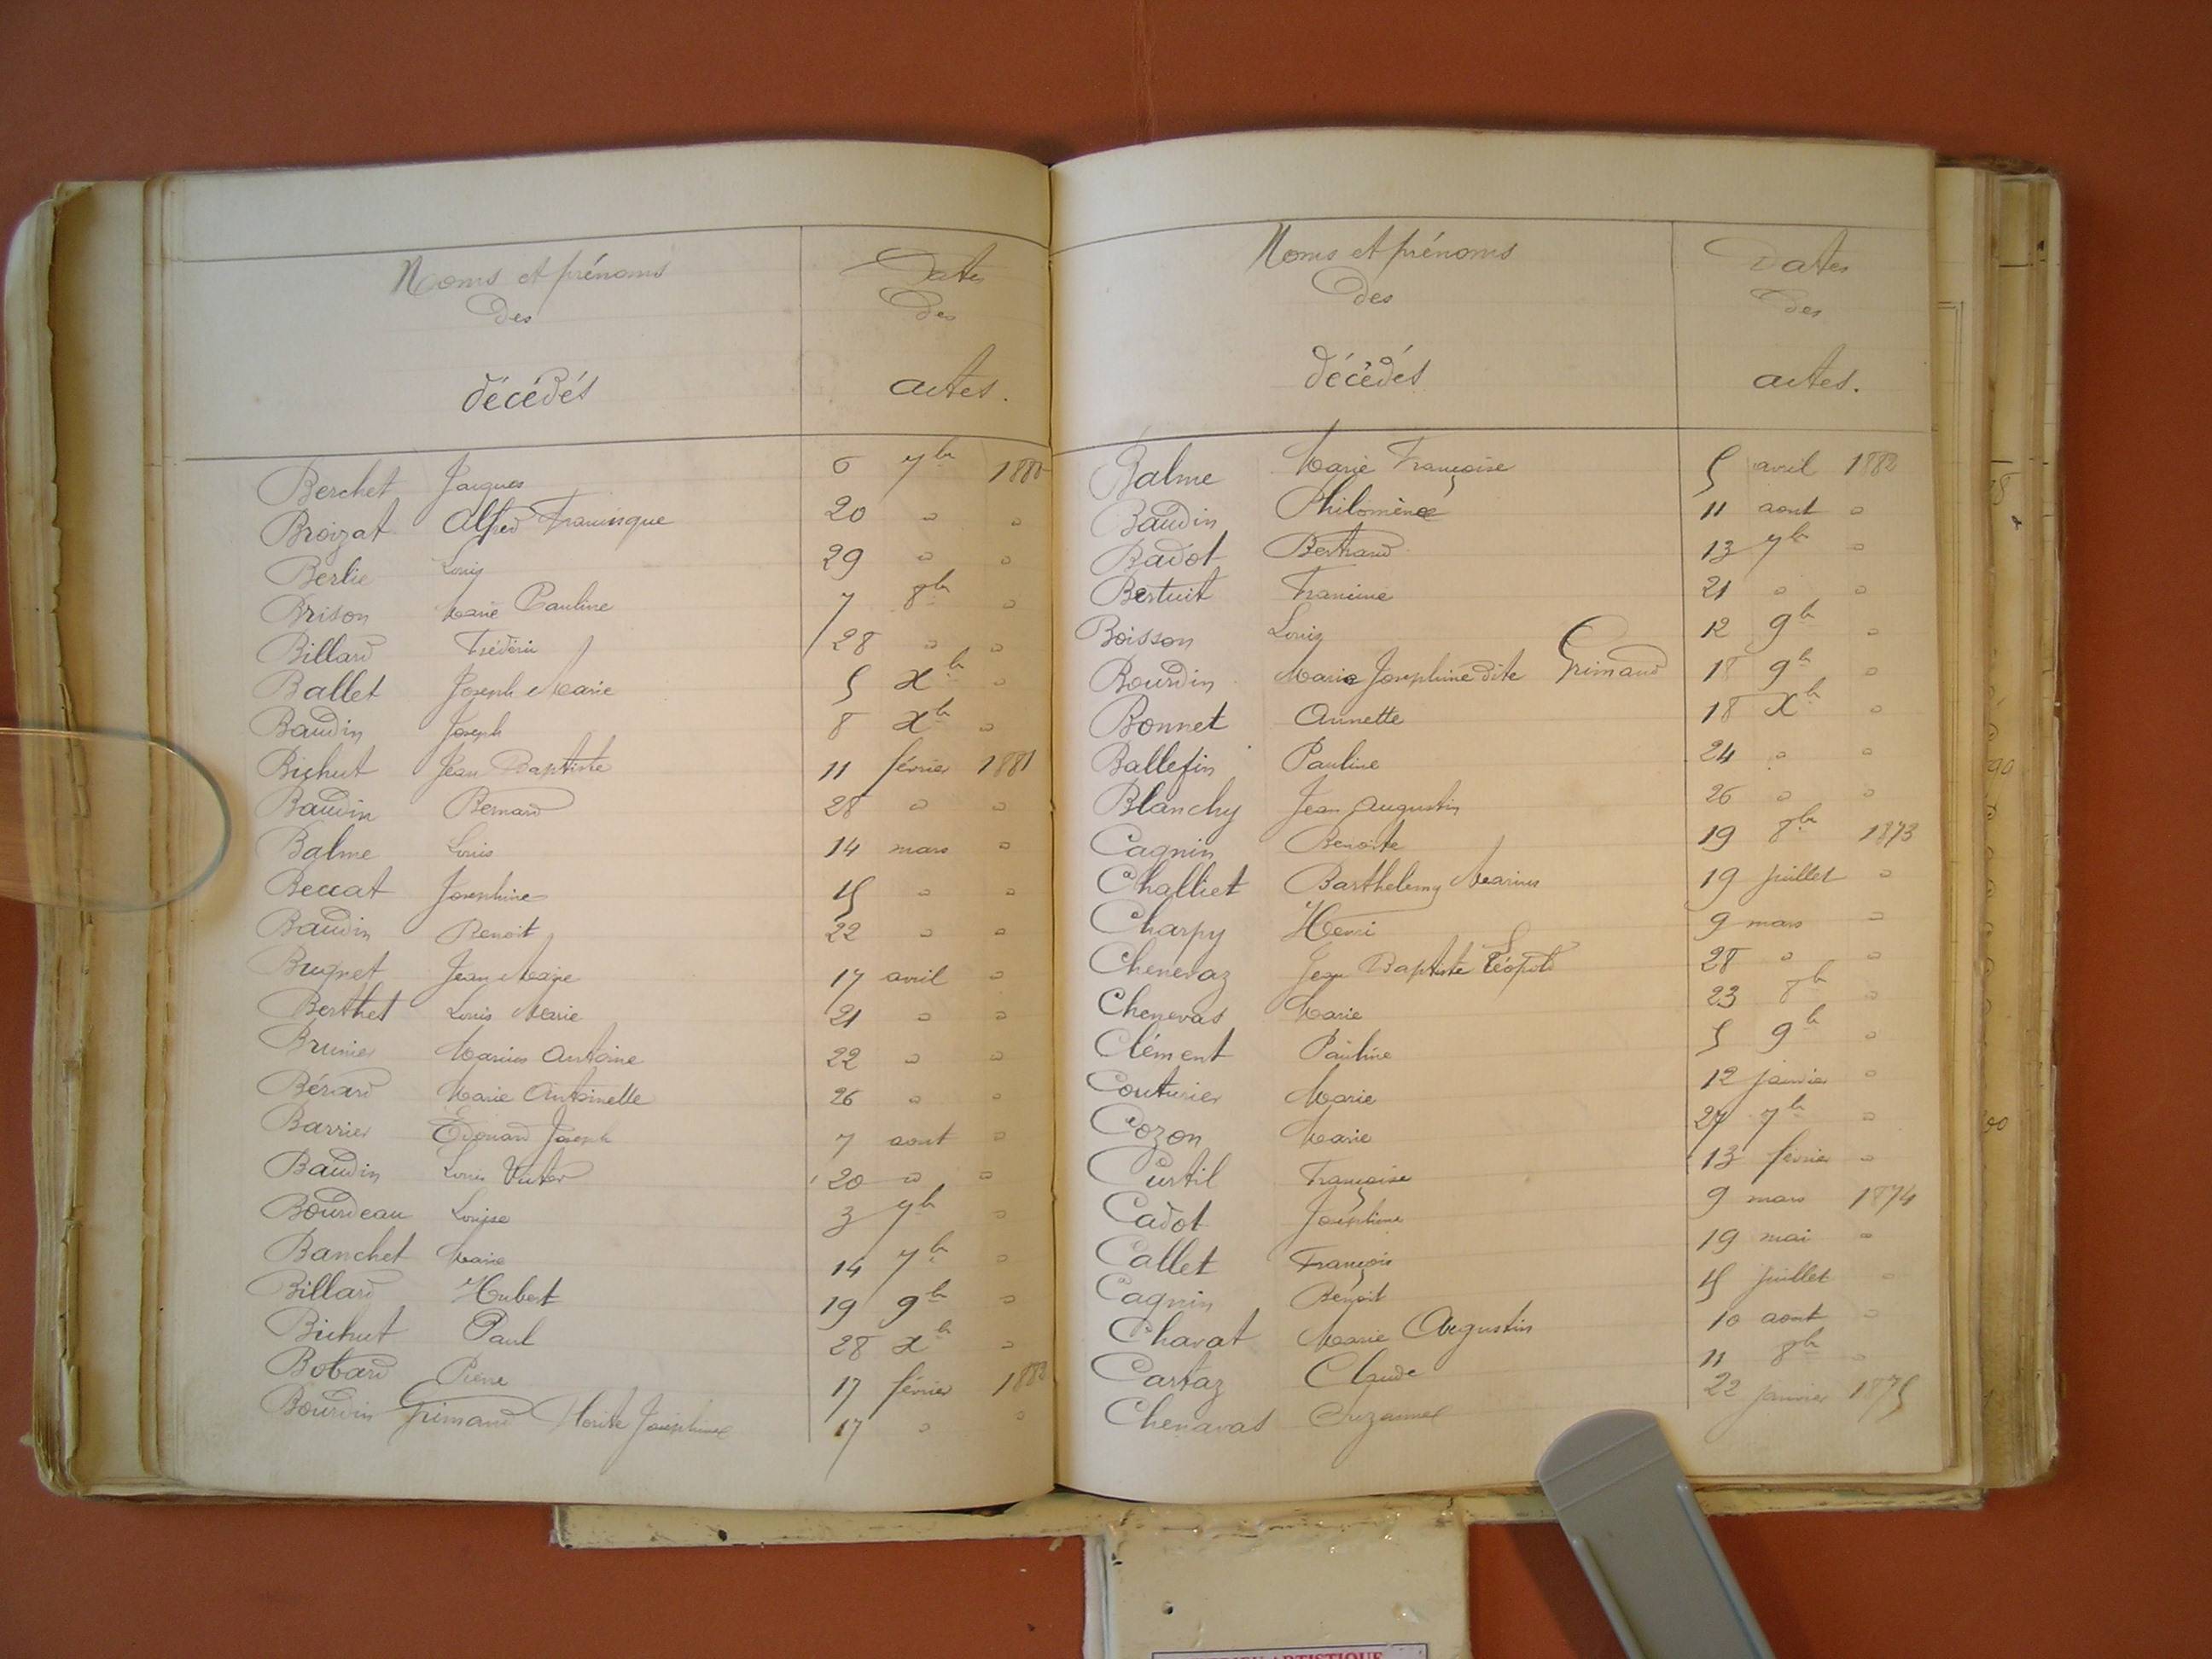 Noms et prénoms
des
décédés
Dates
des
actes.
Berchet Jacques 6 7bre 1880
Broizat Alfred Francisque 20 " "
Berlie Louis 29 " "
Brison Marie Pauline 7 8bre "
Billard Frédéric 28 " "
Ballet Joseph Marie 5 Xbre "
Baudin Joseph 8 Xbre "
Bichut Jean Baptiste 11 février 1881
Baudin Bernard 28 " "
Balme Louis 14 mars "
Beccat Josephine 15 " "
Baudin Benoit 22 " "
Brugnet Jean Marie 17 avril "
Berthet Louis Marie 21 " "
Brunier Marius Antoine 22 " "
Bérard Marie Antoinette 26 " "
Barrier Edouard Joseph 7 aout "
Baudin Louis Victor 20 " "
Bourdeau Louise 3 7bre "
Banchet Marie 14 7bre "
Billard Hubert 19 9bre "
Bichut Paul 28 Xbre "
Bobard Pierre 17 février 1882
Bourdin Grimaud Josephine 17 " "
Noms et prénoms
des
décédés
Dates
des
actes.
Balme Marie Françoise 5 avril 1882
Baudin Philomène 11 aout "
Badot Bertrand 13 7bre "
Bertuit Francine 21 " "
Boisson Louis 12 9bre "
Bourdin Marie Josephine dite Grimaud 18 9bre "
Bonnet Annette 18 Xbre "
Ballefin Pauline 24 " "
Blanchy Jean Augustin 26 " "
Cagnin Benoite 19 8bre 1873
Challiet Barthelemy Marius 19 juillet "
Charpy Henri 9 mars "
Chenevaz Jean Baptiste Léopold 28 " "
Chenevas Marie 23 8bre "
Clément Pauline 5 9bre "
Couturier Marie 12 janvier "
Cozon Marie 27 7bre "
Curtil Françoise 13 février "
Cadot Josephine 9 mars 1874
Callet François 19 mai "
Cagnin Benoit 15 juillet "
Chavat Marie Augustin 10 aout "
Cartaz Claude 11 8bre "
Chenavas Suzanne 22 janvier 1875